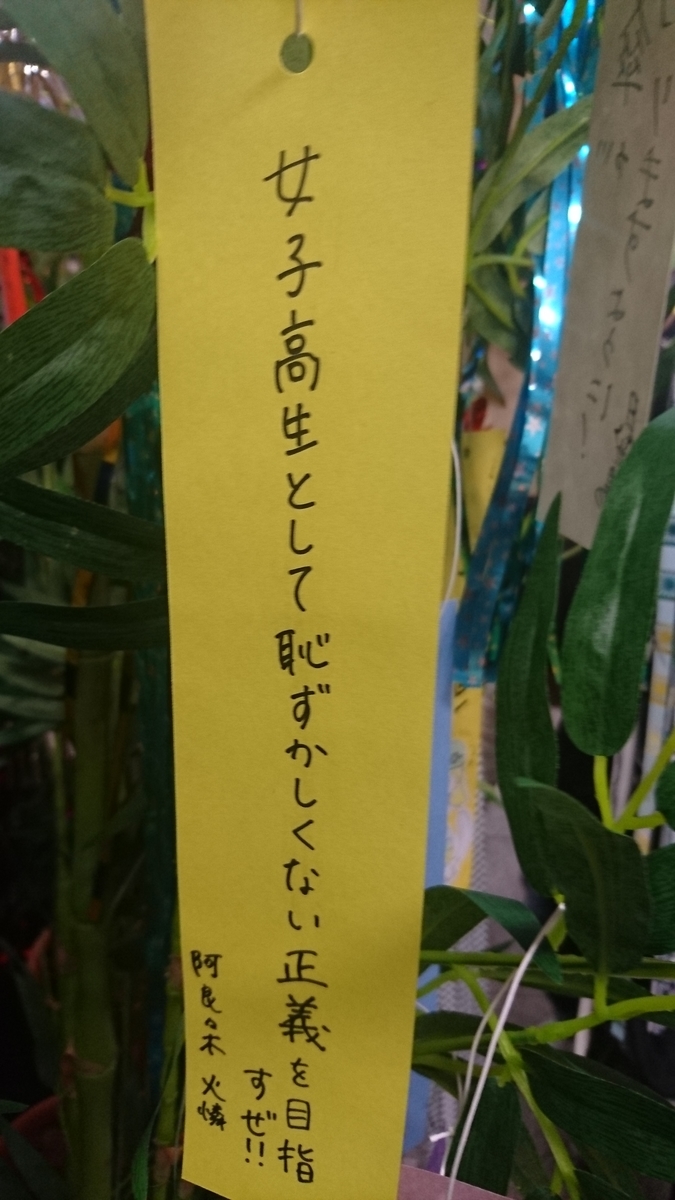 女子高生として恥ずかしくない正義を目指
すぜ!!
阿良々木 火憐